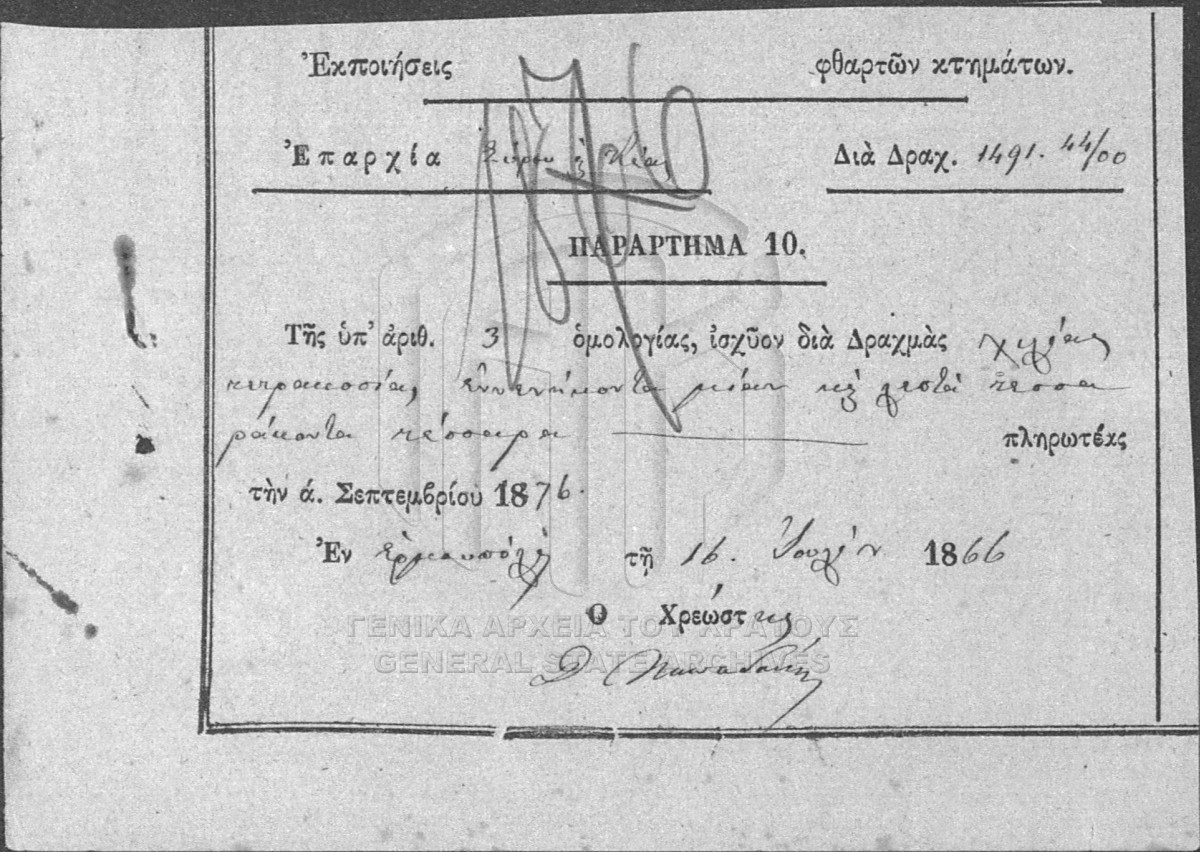 Ἐκποιήσεις φθαρτῶν κτημάτων.
Ἐπαρχία Σύρου & Κέας Διὰ Δραχ. 1491. 44/00
ΠΑΡΑΡΤΗΜΑ 10.
Τῆς ὑπ' ἀριθ. 3 ὁμολογίας, ἰσχῦον διὰ Δραχμὰς χιλίας
τετρακοσίας ἐννενήκοντα μίαν καὶ λεπτὰ τεσσα
ράκοντα τέσσαρα πληρωτέας
τὴν ά. Σεπτεμβρίου 1876.
Ἐν Ἑρμουπόλει τῇ 16. Ἰουλίου 1866
Ὁ Χρεώστης
ΓΕΝΙΚΑ ΑΡΧΕΙΑ ΤΟΥ ΚΡΑΤΟΥΣ
GENERAL STATE ARCHIVES
Δ.